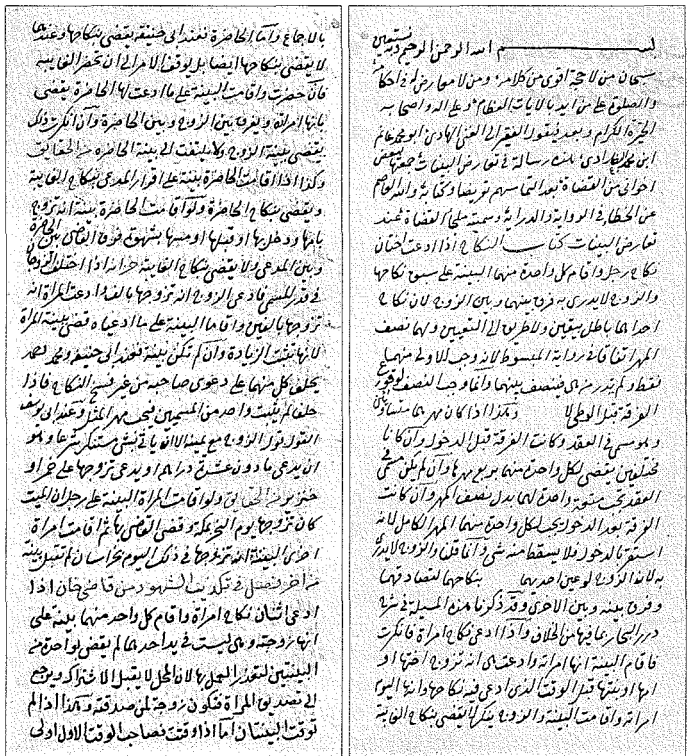 بسم الله الرحمن الرحيم وبه نستعين
سبحان من لا حجة اقوى من كلامه ومن لا معارض له في احكامه
والصلوة على من ايد بالايات العظام وعلى اله واصحابه
الخيرة الكرام وبعد فيقول الفقير الى الغنى الهادى ابو محمد غانم
ابن محمد البغدادى هذه رسالة في تعارض البينات جمعتها لبعض
اخوانى من القضاة بعد التماسهم تعريضا وكناية والله العاصم
عن الخطاء في الرواية والدراية وسميته ملجأ القضاة عند
تعارض البينات كتاب النكاح اذا ادعت اختان
نكاح رجل واقام كل واحدة منهما البينة على سبق نكاحها
والزوج لا يدرى به فرق بينهما وبين الزوج لان نكاح
احداهما باطل بيقين ولا طريق الى التعيين ولهما نصف
المهر اتفاقا في رواية المبسوط لانه وجب للاولى منهما
فقط ولم يدر من هى فينصف بينهما وانما وجب النصف لوقوع
الفرقة قبل الوطى هكذا اذا كان مهرهما متساويان
وهو مسمى في العقد وكانت الفرقة قبل الدخول وان كانا
مختلفين يقضى لكل واحدة منهما بربع مهرها وان لم يكن مسمى في
العقد تجب متعة واحدة لهما بدل نصف المهر وان كانت
الفرقة بعد الدخول يجب لكل واحدة منهما المهر الكامل لانه
استقر بالدخول فلا يسقط منه شى وانما قلنا والزوج لا يدرى
به لان الزوج لو عين احديهما نكاحهما لتصادقهما
وفرق بينه وبين الاخرى وقد ذكرنا هذه المسئلة في شرح
درر البحار بما فيها من الخلاف واذا ادعى نكاح امراة فانكرت
فاقام البينة انها امراته وادعت هى انه تزوج اختها او
امها او بنتها قبل الوقت الذى ادعى فيه نكاحها وانها اليوم
امراته واقامت البينة والزوج ينكر لا يقضى بنكاح الغايبة
بالاجماع واما الحاضرة فعند ابى حنيفة يقضى بنكاحها وعندهما
لا يقضى بنكاحها ايضا بل يوقف الامر الى ان تحضر الغايبة
فان حضرت واقامت البينة على ما ادعت لها الحاضرة يقضى
بانها امراته ويفرق بين الزوج وبين الحاضرة وان انكرت ذلك
يقضى ببينة الزوج ولا يلتفت الى بينة الحاضرة من الحقائق
وكذا اذا اقامت الحاضرة بينة على اقرار المدعى بنكاح الغايبة
ويقضى بنكاح الحاضرة ولو اقامت الحاضرة بينة انه تزوج
بامها ودخل بها او قبلها او مسها بشهوة فرق القاضى بين الحاضرة
وبين المدعى ولا يقضى بنكاح الغايبة خزانه اذا اختلف الزوجان
في قدر المسمى فادعى الزوج انه تزوجها بالف وادعت المراة انه
تزوجها بالفين واقاما البينة على ما ادعياه قضى ببينة المراة
لانها تثبت الزيادة وان لم تكن بينة فعند ابى حنيفة ومحمد بعد
يحلف كل منهما على دعوى صاحبه من غير فسخ النكاح فاذا
حلفا لم يثبت واحد من المسميين فيجب مهر المثل وعند ابى يوسف
القول قول الزوج مع يمينه الا ان ياتى بشى مستنكر شرعا وهو
ان يدعى ما دون عشرة دراهم او يدعى تزوجها على خمر او
خنزير من الحقائق ولو اقامت المراة البينة على رجل ان الميت
كان تزوجها يوم النحر بمكة وقضى القاضى بها ثم اقامت امراة
اخرى البينة انه تزوجها في ذلك اليوم بخراسان لم تقبل بينة
من اخر فصل في تكذيب الشهود من قاضى خان اذا
ادعى اثنان نكاح امراة واقام كل واحد منهما بينة على
انها زوجته وهى ليست في يد احدهما لم يقض لواحدة من
البينتين لتعذر العمل بهما لان المحل لا يقبل الاشتراك ويرجع
الى تصديق المراة فتكون زوجة لمن صدقته وهكذا اذا لم
توقت البينتان اما اذا وقتت فصاحب الوقت الاول اولى